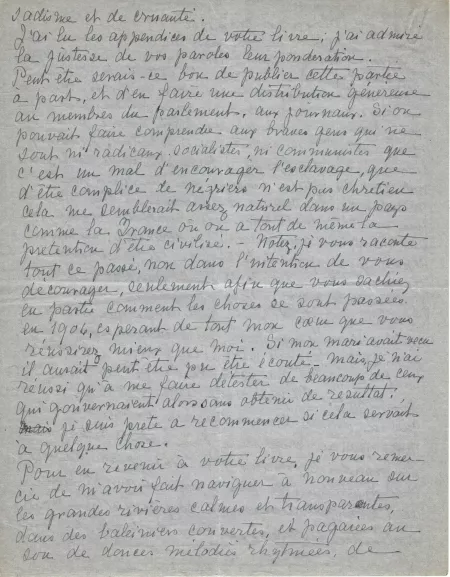 sadisme et de cruauté.
J'ai lu les appendices de votre livre; j'ai admiré
la justesse de vos paroles leur pondération.
Peut être serais-ce bon de publier cette partie
à part, et d'en faire une distribution généreuse
au membres du parlement, aux journaux. Si on
pouvait faire comprendre aux braves gens qui ne
sont ni radicaux socialistes, ni communistes que
c'est un mal d'encourager l'esclavage, que
d'être complice de négriers n'est pas chrétien
cela me semblerait assez naturel dans un pays
comme la France où on a tout de même la
prétention d'être civilisé. - Notez, je vous raconte
tout ce passé, non dans l'intention de vous
décourager, seulement afin que vous sachiez
en partie comment les choses se sont passées
en 1904, esperant de tout mon cœur que vous
réussirez mieux que moi. Si mon mari avait vécu
il aurait peut être pu être écouté - mais, je n'ai
réussi qu'à me faire détester de beaucoup de ceux
qui gouvernaient alors sans obtenir de résultat.
mais je suis prête à recommencer si cela servait
à quelque chose.
Pour en revenir à votre livre, je vous remer
cie de m'avoir fait naviguer à nouveau sur
les grandes rivières calmes et transparentes,
dans des baleiniers couvertes, et pagaiées au
son de douces mélodies rhytmées, de